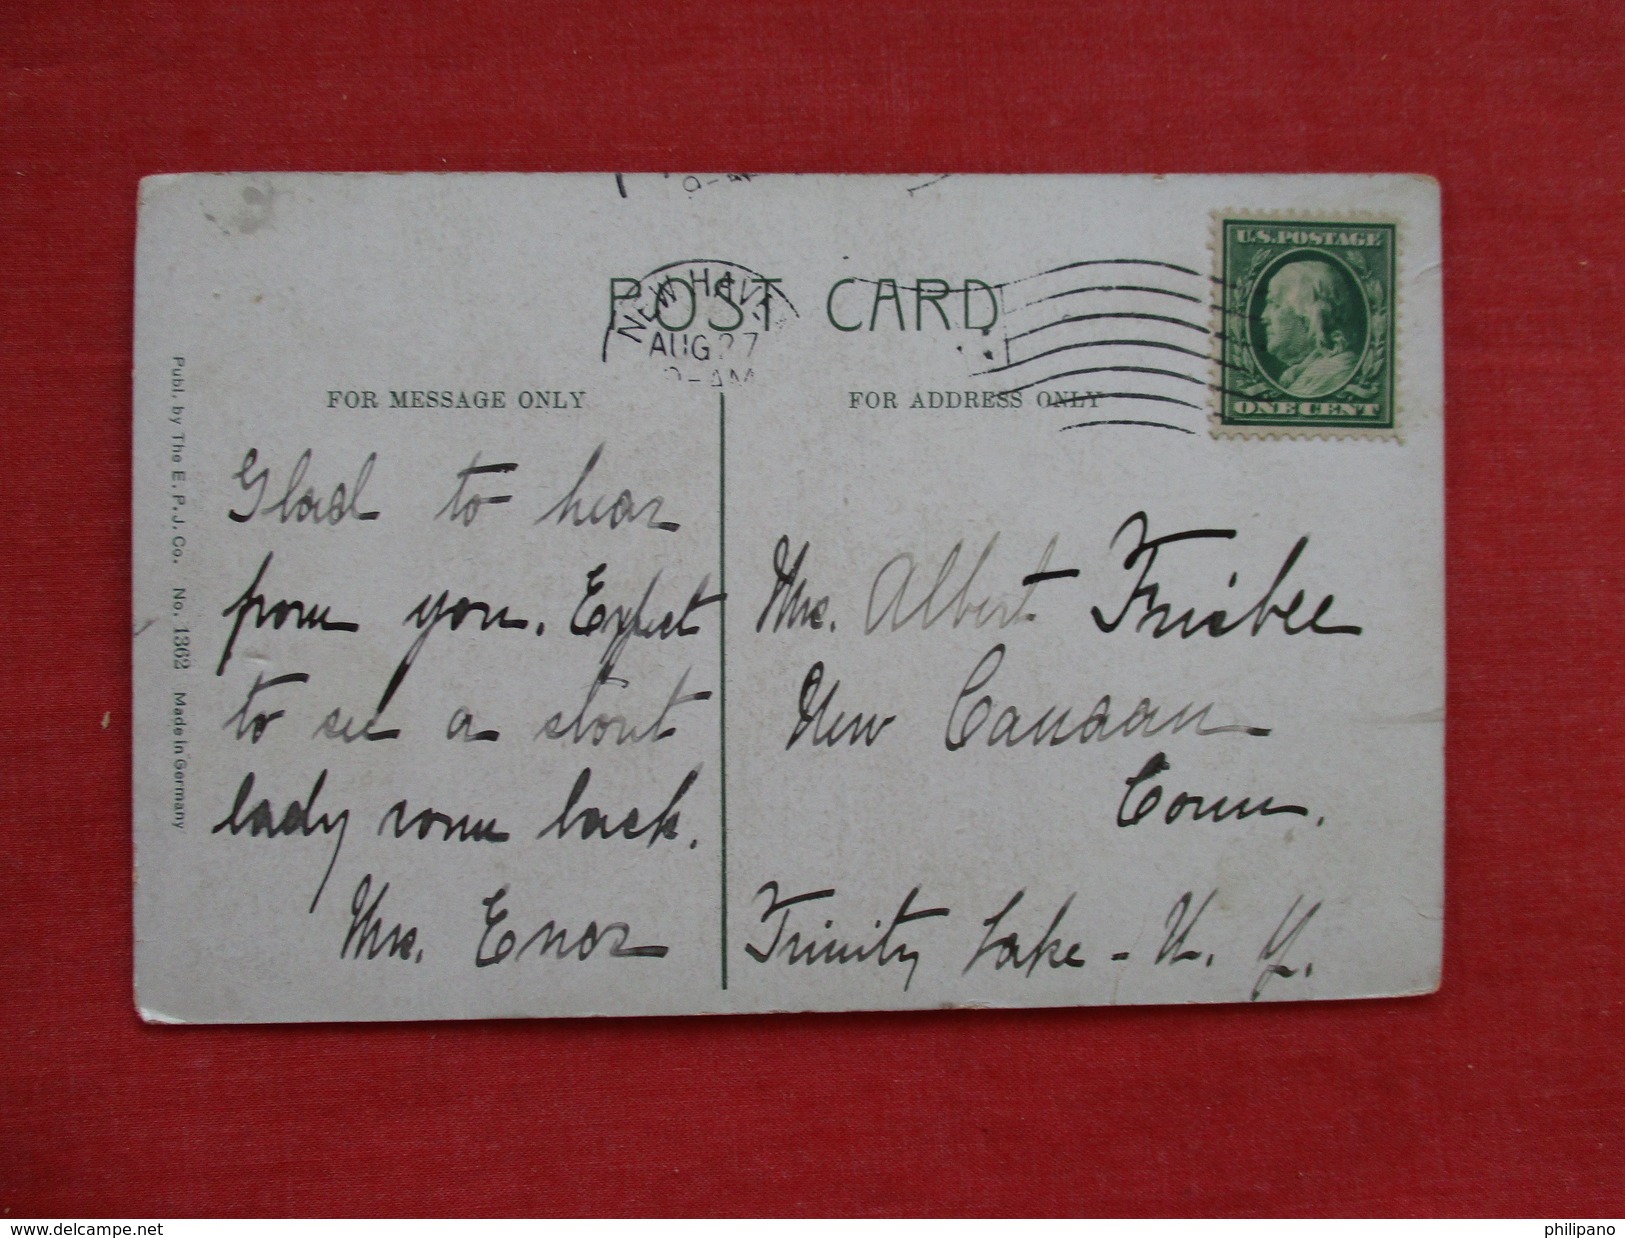 POST CARD
NEW HAV
AUG 27
-AM
U.S. POSTAGE
ONE CENT
FOR MESSAGE ONLY
FOR ADDRESS ONLY
Publ. by The E. P. J. Co. No. 1362 Made in Germany
Glad to hear
from you. Expect
to see a stout
lady come back.
Mrs. Enos
Mrs. Albert Frisbee
New Canaan
Conn.
Trinity Lake - N. Y.
delcampe.net
philipano